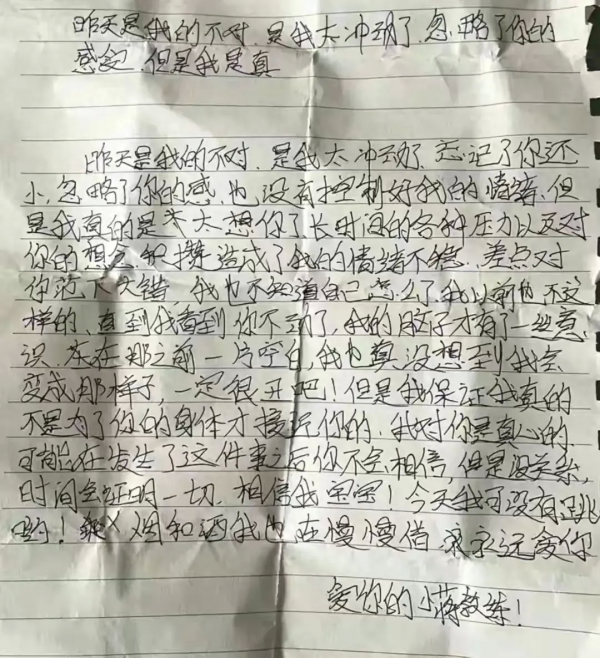 昨天是我的不对,是我太冲动了,忽略了你的
感受,但是我是真
昨天是我的不对,是我太冲动了,忘记了你还
小,忽略了你的感,也没有控制好我的情绪,但
是我真的是太想你了,长时间的各种压力以及对
你的想念积攒造成了我的情绪不稳,差点对
你犯下大错,我也不知道自己怎么了,我以前也不这
样的,直到我看到你不动了,我的脑子才有了一丝意
识,在那之前一片空白,我也真没想到我会
变成那样子,一定很丑吧!但是我保证我真的
不是为了你的身体才接近你的,我对你是真心的,
可能在发生了这件事之后你不会相信,但是没关系,
时间会证明一切,相信我宝宝!今天我可没有跳
哟!烟和酒我也在慢慢借 永远爱你
爱你的小蒋教练!